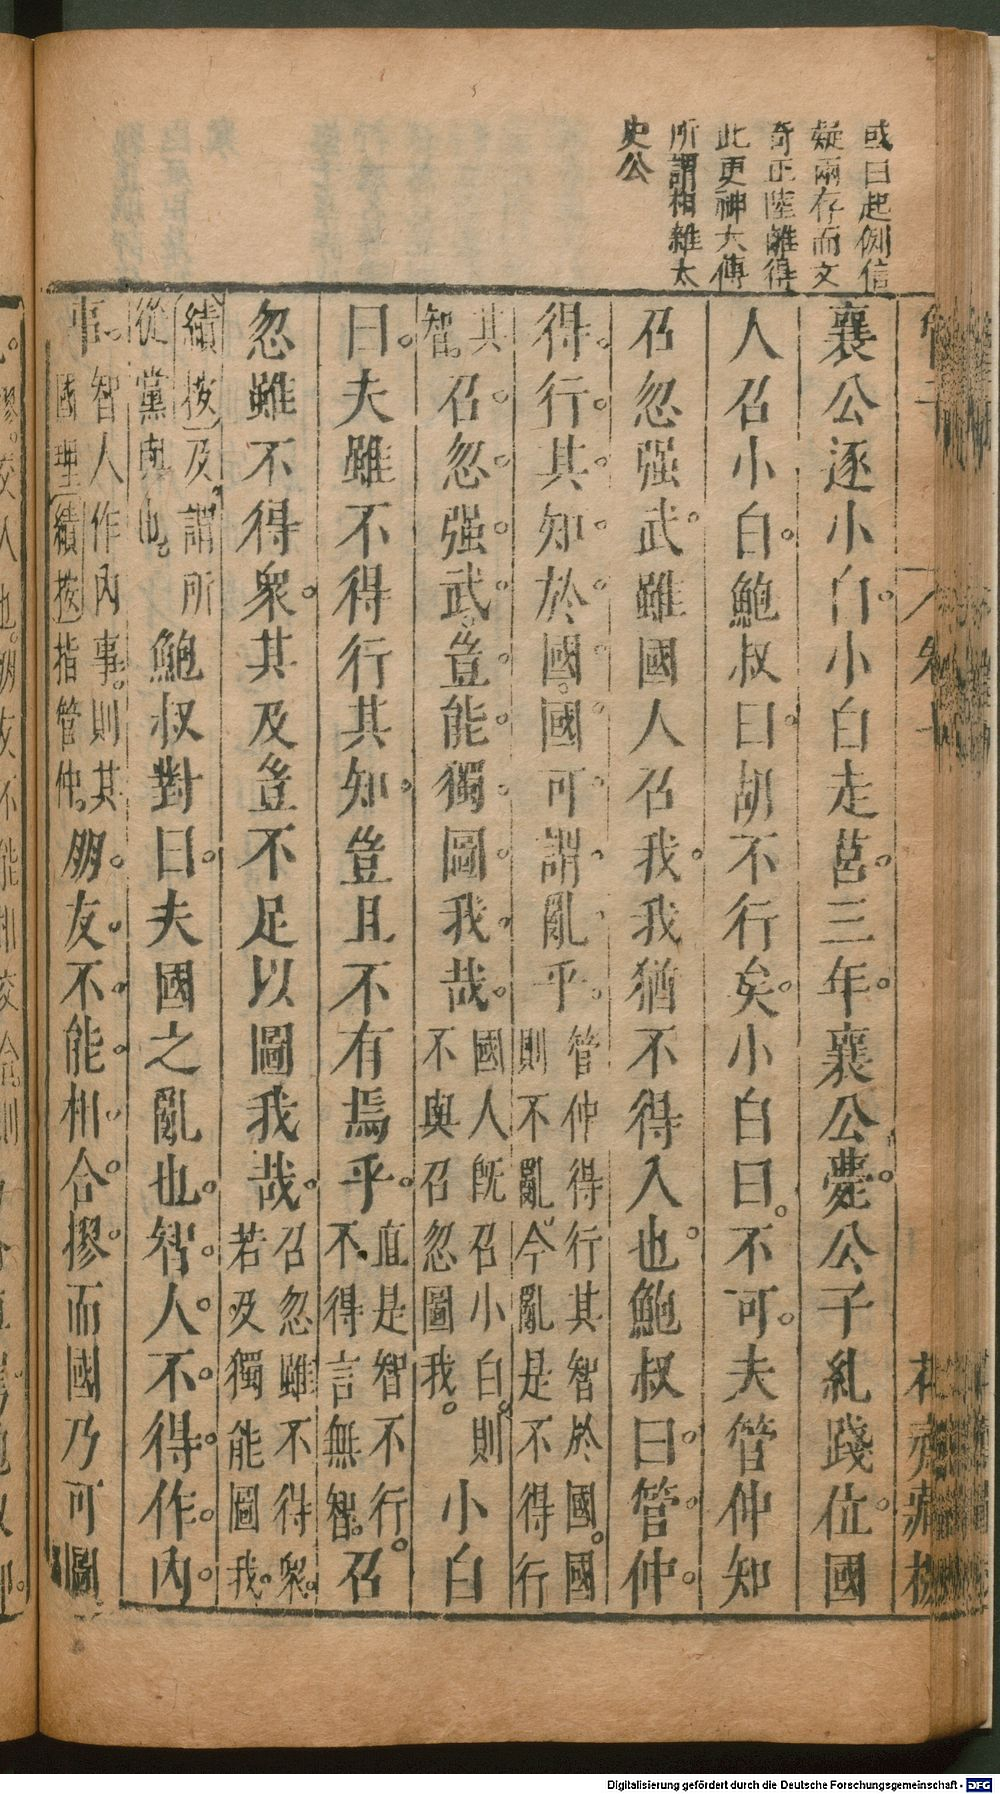 或曰起例信
疑兩存而文
奇正陸離得
此更神大傳
所謂相雜太
史公
襄公逐小白。小白走莒。三年。襄公薨。公子糺踐位。國
人召小白。鮑叔曰。胡不行矣。小白曰。不可。夫管仲知
召忽强武。雖國人召我。我猶不得入也。鮑叔曰。管仲。
得。行。其。知。於。國。國。可。謂。亂。乎。管仲得行其智於國。國
則不亂。今亂是不得行
其
智。召。忽。强。武。豈。能。獨。圖。我。哉。國人旣召小白。則
不與召忽圖我。小白
曰。夫雖不得行其知。豈且不有焉乎。直是智不行。
不得言無智。召
忽雖不得衆。其及豈不足以圖我哉。召忽雖不得衆。
若及獨能圖我。
續按及謂所
從黨與也。鮑叔對曰。夫國之亂也。智。人。不。得。作。內。
事。智人作內事。則其
國理續按指管仲。朋。友。不。能。相。合。摎。而國乃可圖
Digitalisierung gefördert durch die Deutsche Forschungsgemeinschaft - DFG